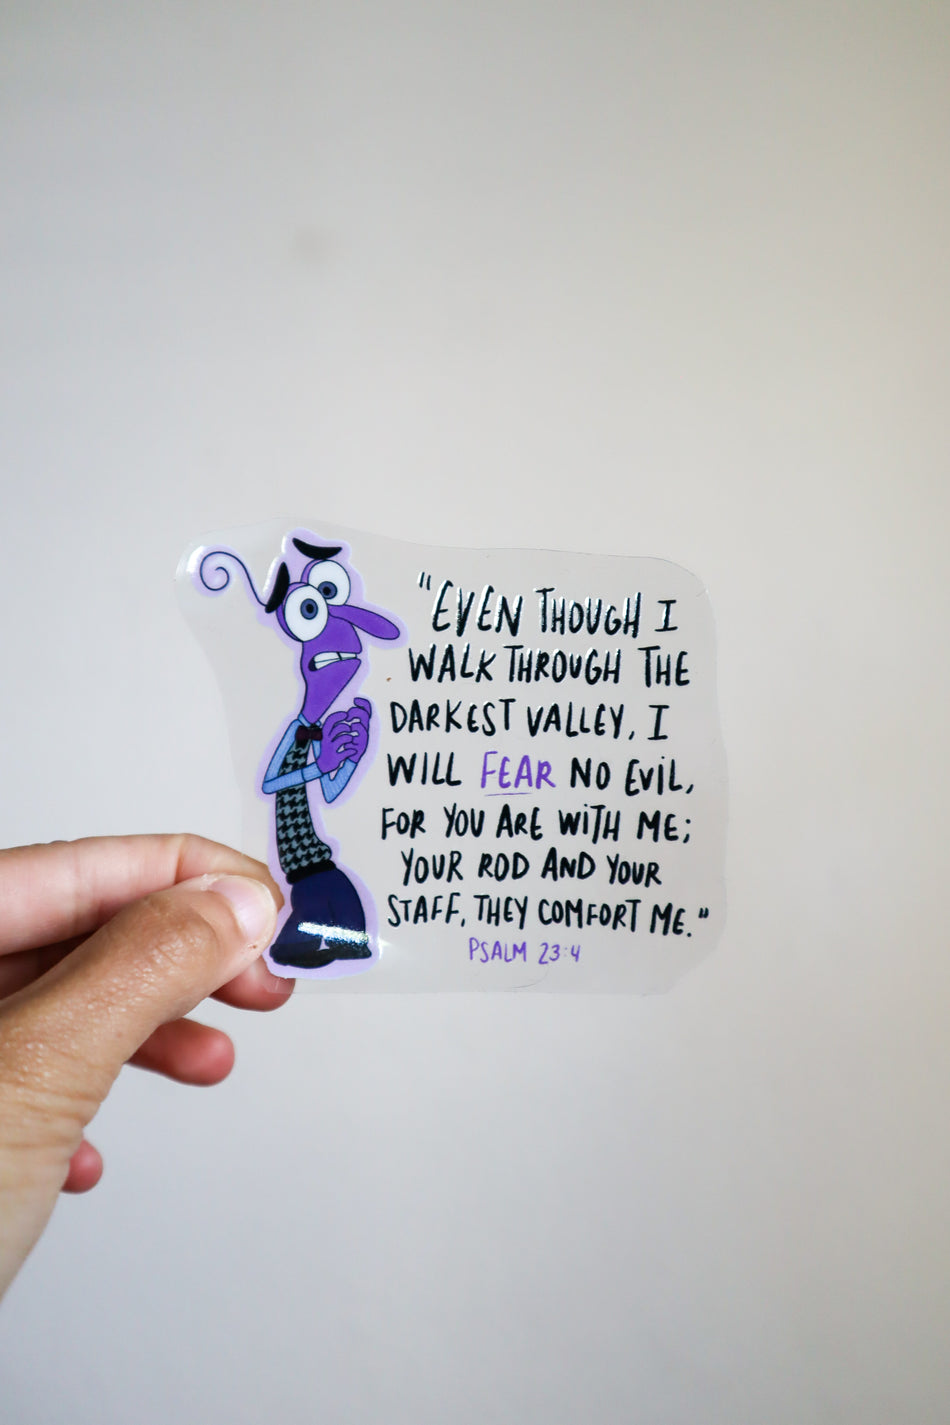 "EVEN THOUGH I
WALK THROUGH THE
DARKEST VALLEY, I
WILL FEAR NO EVIL,
FOR YOU ARE WITH ME;
YOUR ROD AND YOUR
STAFF, THEY COMFORT ME."
PSALM 23:4